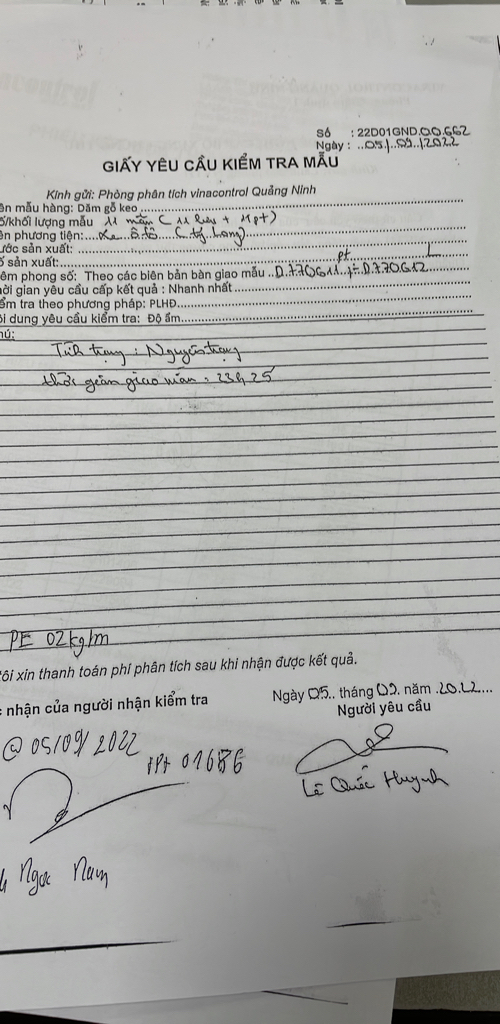 Số : 22D01GND.00.662
Ngày : ..05./..09../2022
GIẤY YÊU CẦU KIỂM TRA MẪU
Kính gửi: Phòng phân tích vinacontrol Quảng Ninh
ên mẫu hàng: Dăm gỗ keo
ố/khối lượng mẫu 11 mẫu ( 11 lưu + 11pt)
ên phương tiện:... Xe ô tô
ước sản xuất:
ố sản xuất: pt L
êm phong số: Theo các biên bản bàn giao mẫu ..0.770611 ÷ 0.770612
ời gian yêu cầu cấp kết quả : Nhanh nhất
ểm tra theo phương pháp: PLHĐ
ội dung yêu cầu kiểm tra: Độ ẩm
hú:
Tình trạng : Nguyên trạng
thời gian giao mẫu : 23h25
PE 02kg/m
ôi xin thanh toán phí phân tích sau khi nhận được kết quả.
Ngày 05.. tháng 09. năm 2022...
nhận của người nhận kiểm tra
Người yêu cầu
@ 05/09/2022
01686
Lê Quốc Huynh
Ngọc Nam